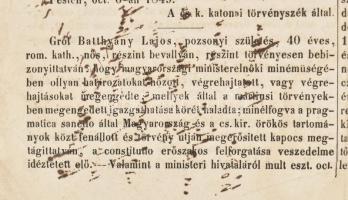 Pesten, oct. 6-án 1849.
A cs. k. katonai törvényszék által.
Gróf Batthyány Lajos, pozsonyi születés 40 éves,
rom. kath., nős, részint bevallván, részint törvényesen bebi-
zonyittatván, hogy magyarországi ministerelnöki minémüségé-
ben ollyan határozatokat hozott, végrehajtott, vagy végre-
hajtásokat megengedte, mellyek által a martiusi törvények-
ben megengedett igazgatási kört, haladta; minélfogva a prag-
matica sanctio által Magyarország és a cs. kir. örökös tartomá-
nyok közt fenállott és törvény utján megerősitett kapocs meg-
tágittatván, a constitutio erőszakos felforgatása veszedelme
idéztetett elő. — Valamint a ministeri hivataláról mult eszt. oct.